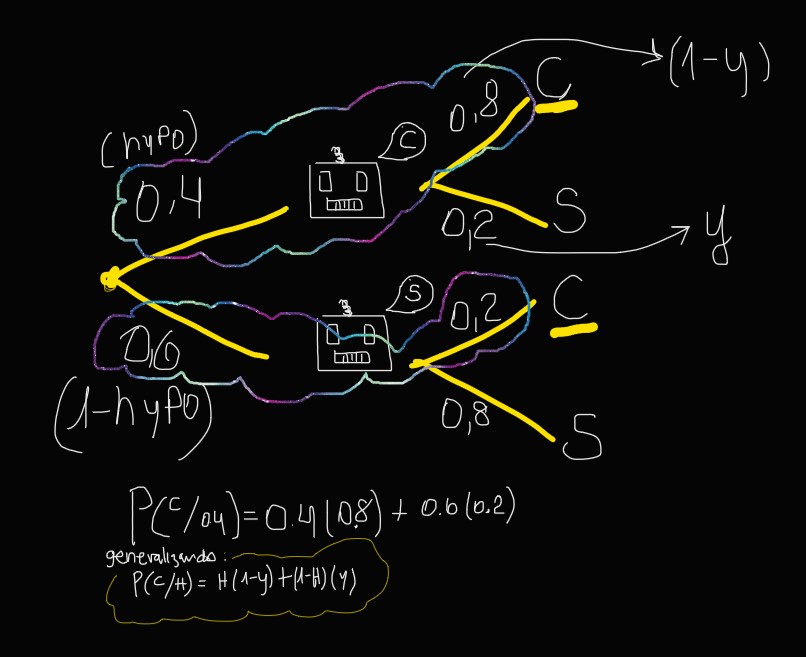 (1-y)
C
0,8
(hypo)
C
0,4
0,2
S
y
S
0,2
C
0,6
(1-hypo)
0,8
S
P(C/0.4)=0.4(0.8)+0.6(0.2)
generalizando:
P(C/H)=H(1-y)+(1-H)(y)